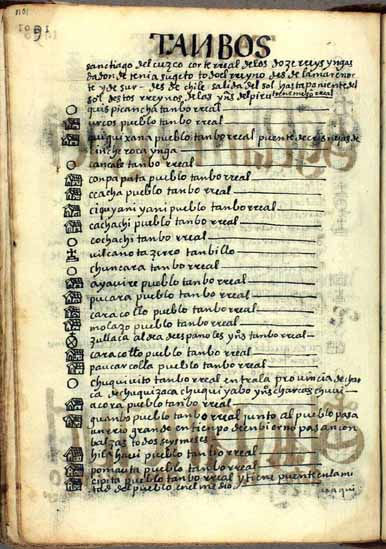 1091
TANBOS
sanctiago del cuzco corte rreal de los doze rreys yngas
dadonde tenia sugeto todo el rreyno desde la mar e nor
te y de sur desde chile salida del sol hasta poniente del
sol destos rreynos de las yns del piru
quispicancha tanbo rreal
urcos pueblo tanbo rreal
quiquixana pueblo tanbo rreal puente de crisnejas de
cinche roca ynga
cancalla tanbo rreal
conpapata pueblo tanbo rreal
ccacha pueblo tanbo rreal
ciquyani yani pueblo tanbo rreal
cachachi pueblo tanbo rreal
cochachi tanbo rreal
uilcanota zerro tanbillo
chuncara tanbo rreal
ayauire pueblo tanbo rreal
pucara pueblo tanbo rreal
caracollo pueblo tanbo rreal
molazo pueblo tanbo rreal
zullaca aldea despañoles yns tanbo rreal
caracollo pueblo tanbo rreal
paucarcolla pueblo tanbo rreal
chuquiuito tanbo rreal entra la prouincia de
de chuquizaca chuquiyabo yns charcas
acora pueblo tanbo rreal
pueblo tanbo rreal junto al pueblo pasa
un rrio grande en tienpo de enbierno pasan con
balzas todos seys meses
hilahaui pueblo tanbo rreal
pomauta pueblo tanbo rreal
cipita pueblo tanbo rreal y tiene puente en la mi
tad del pueblo en el medio